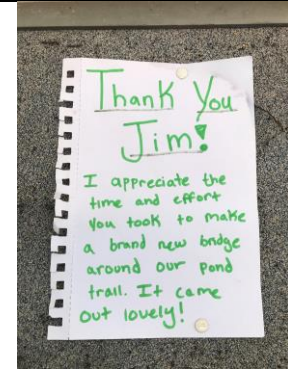 Thank You
Jim!
I appreciate the
time and effort
you took to make
a brand new bridge
around our pond
trail. It came
out lovely!